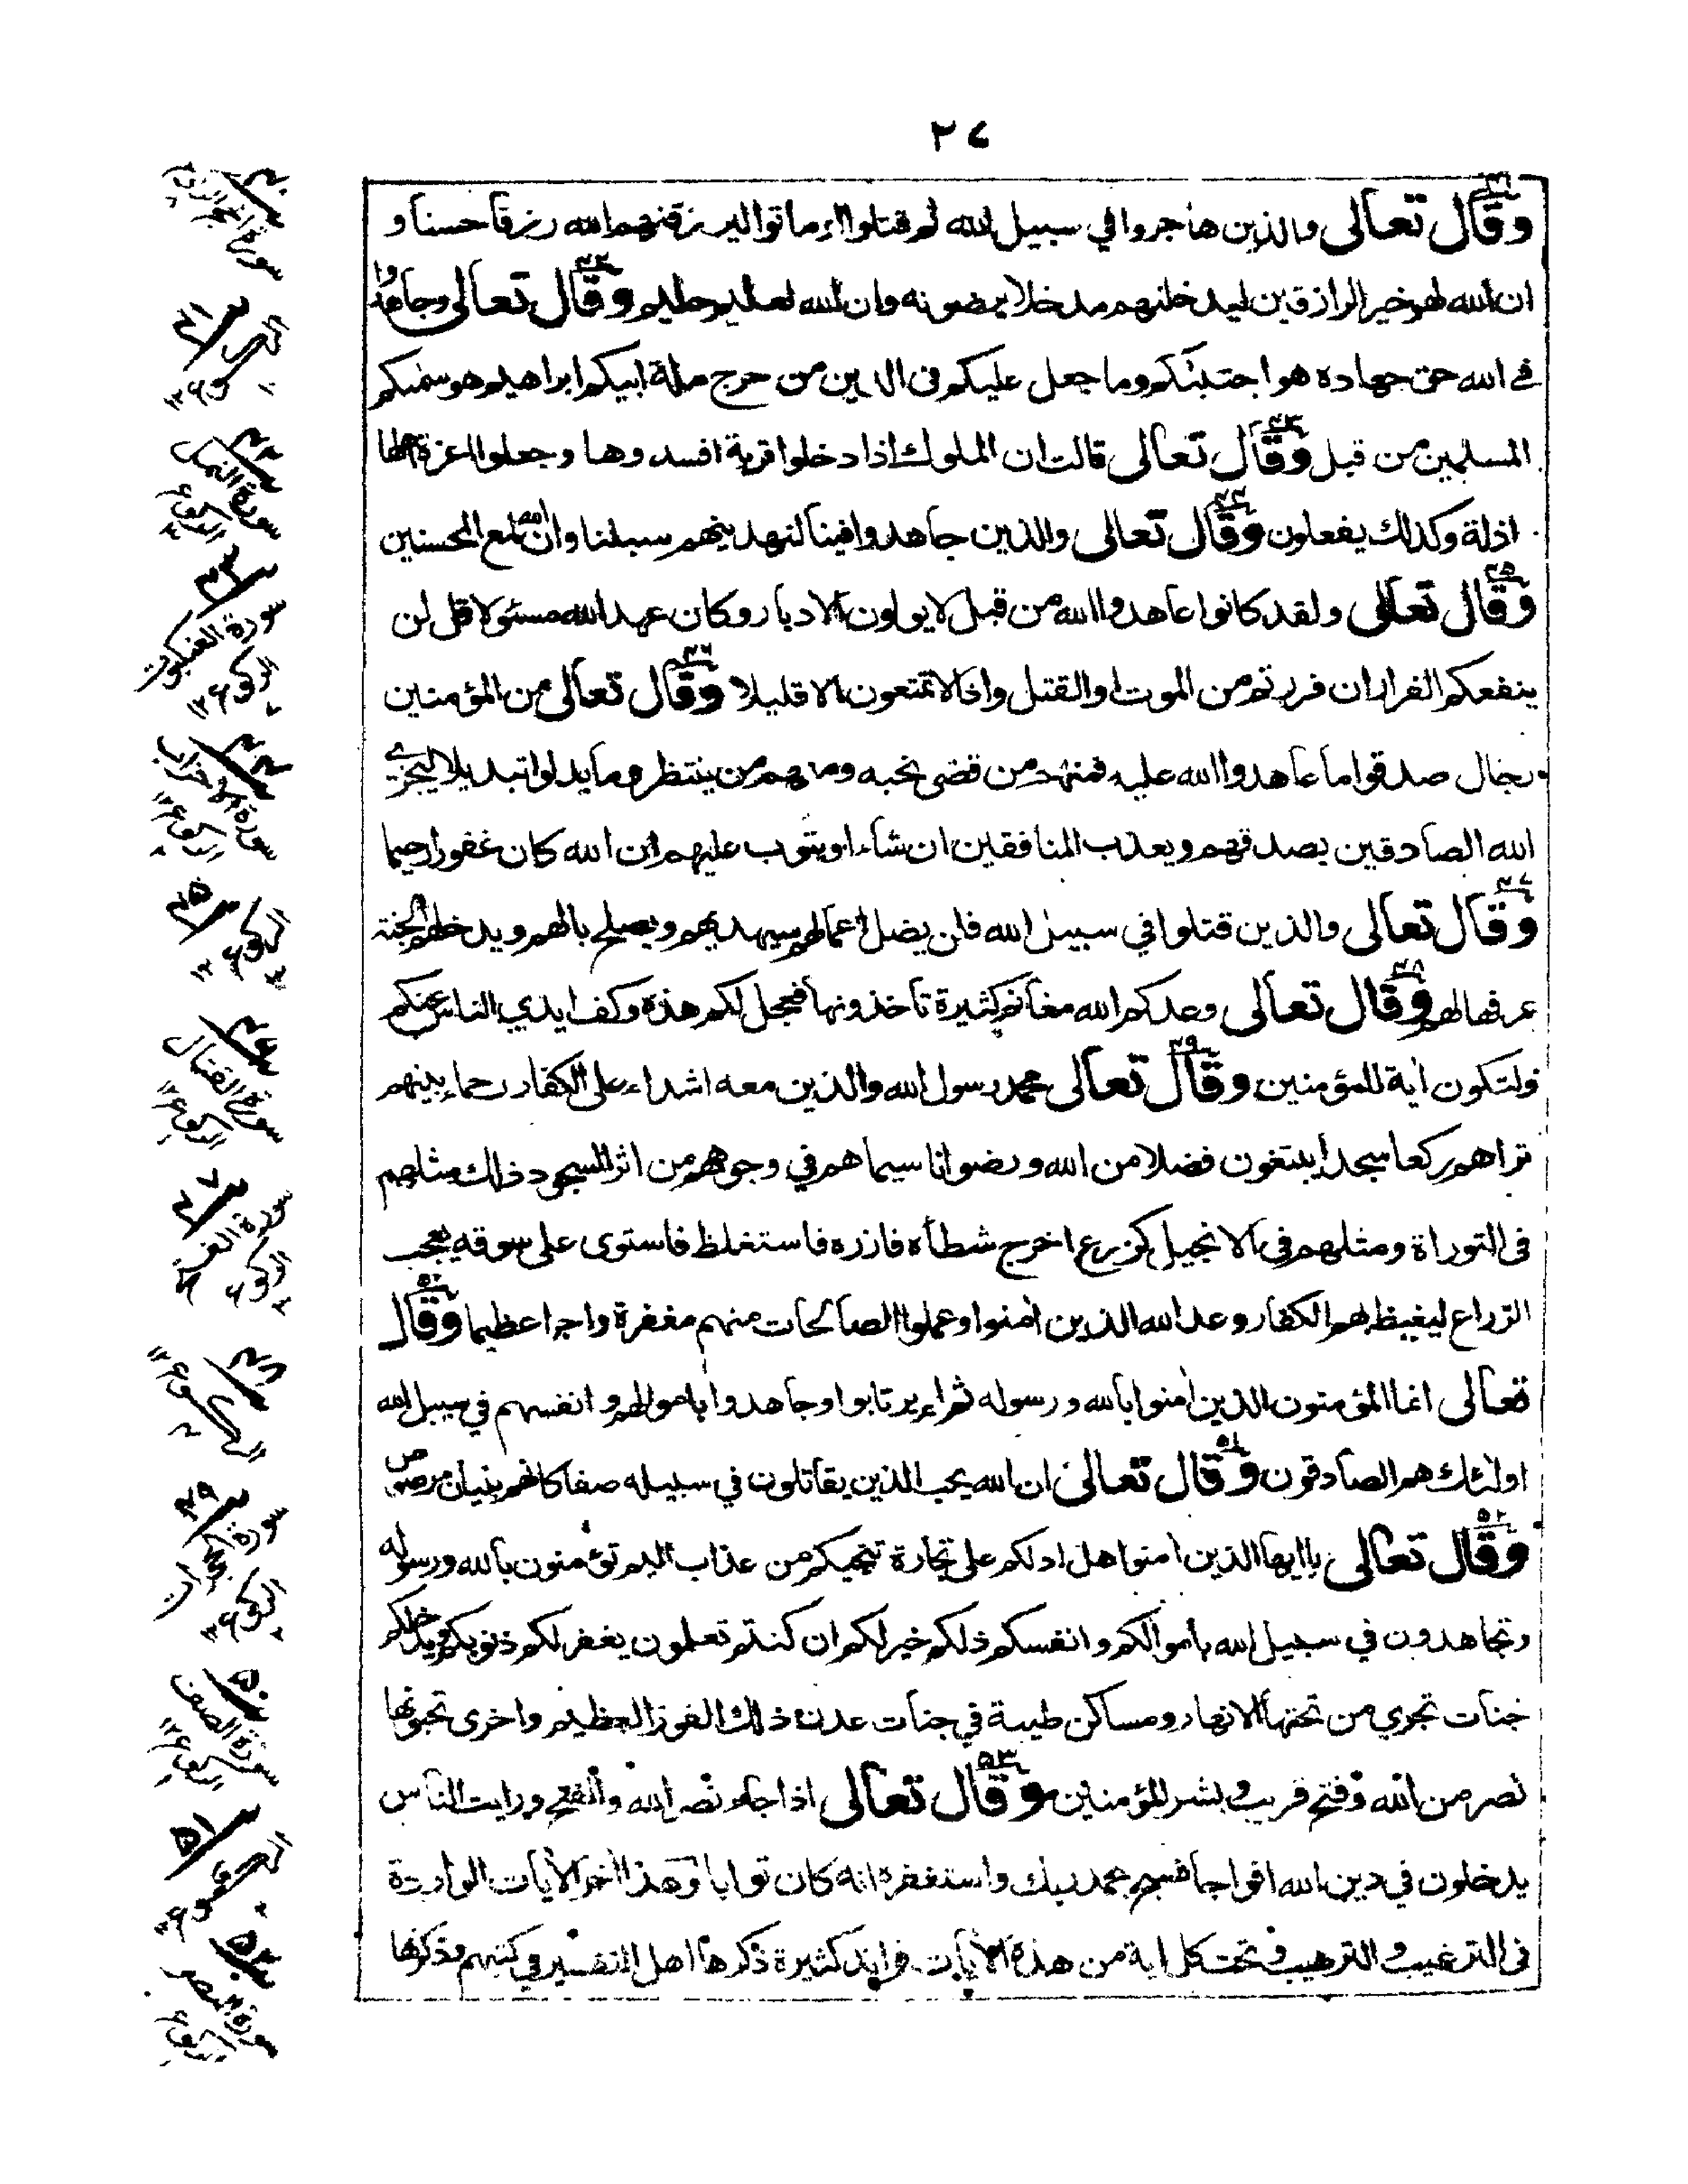 ٢٧
وقال تعالى والذين هاجروا في سبيل الله ثم قتلوا او ماتوا ليرزقنهم الله رزقا حسنا و
ان الله لهو خير الرازقين ليدخلنهم مدخلا يرضونه وان الله لعليم حليم ٤٢ وقال تعالى وجاهدوا
في الله حق جهاده هو اجتبىكم وما جعل عليكم في الدين من حرج ملة ابيكم ابراهيم هو سمىكم
المسلمين من قبل ٤٣ وقال تعالى قالت ان الملوك اذا دخلوا قرية افسدوها وجعلوا اعزة اهلها
اذلة وكذلك يفعلون ٤٤ وقال تعالى والذين جاهدوا فينا لنهدينهم سبلنا وان الله لمع المحسنين
٤٥ وقال تعالى ولقد كانوا عاهدوا الله من قبل لا يولون الادبار وكان عهد الله مسئولا قل لن
ينفعكم الفرار ان فررتم من الموت او القتل واذا لا تمتعون الا قليلا ٤٦ وقال تعالى من المؤمنين
رجال صدقوا ما عاهدوا الله عليه فمنهم من قضى نحبه ومنهم من ينتظر وما بدلوا تبديلا ليجزي
الله الصادقين بصدقهم ويعذب المنافقين ان شاء او يتوب عليهم ان الله كان غفورا رحيما
٤٧ وقال تعالى والذين قتلوا في سبيل الله فلن يضل اعمالهم سيهديهم ويصلح بالهم ويدخلهم الجنة
عرفها لهم ٤٨ وقال تعالى وعدكم الله مغانم كثيرة تاخذونها فعجل لكم هذه وكف ايدي الناس عنكم
ولتكون اية للمؤمنين ٤٩ وقال تعالى محمد رسول الله والذين معه اشداء على الكفار رحماء بينهم
تراهم ركعا سجدا يبتغون فضلا من الله ورضوانا سيماهم في وجوههم من اثر السجود ذلك مثلهم
في التوراة ومثلهم في الانجيل كزرع اخرج شطأه فازره فاستغلظ فاستوى على سوقه يعجب
الزراع ليغيظ بهم الكفار وعد الله الذين امنوا وعملوا الصالحات منهم مغفرة واجرا عظيما ٥٠ وقال
تعالى انما المؤمنون الذين امنوا بالله ورسوله ثم لم يرتابوا وجاهدوا باموالهم وانفسهم في سبيل الله
اولئك هم الصادقون ٥١ وقال تعالى ان الله يحب الذين يقاتلون في سبيله صفا كانهم بنيان مرصوص
٥٢ وقال تعالى يا ايها الذين امنوا هل ادلكم على تجارة تنجيكم من عذاب اليم تؤمنون بالله ورسوله
وتجاهدون في سبيل الله باموالكم وانفسكم ذلكم خير لكم ان كنتم تعلمون يغفر لكم ذنوبكم ويدخلكم
جنات تجري من تحتها الانهار ومساكن طيبة في جنات عدن ذلك الفوز العظيم واخرى تحبونها
نصر من الله وفتح قريب وبشر المؤمنين ٥٣ وقال تعالى اذا جاء نصر الله والفتح ورايت الناس
يدخلون في دين الله افواجا فسبح بحمد ربك واستغفره انه كان توابا وهذا اخر الآيات الواردة
في الترغيب والترهيب وتحت كل اية من هذه الآيات فوايد كثيرة ذكرها اهل التفسير في كتبهم وذكرها
سورة النمل
سورة العنكبوت
سورة الاحزاب
سورة القتال
سورة الفتح
سورة الحجرات
سورة الصف
سورة النصر